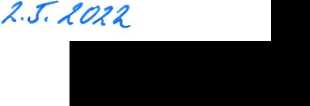 2.5. 2022